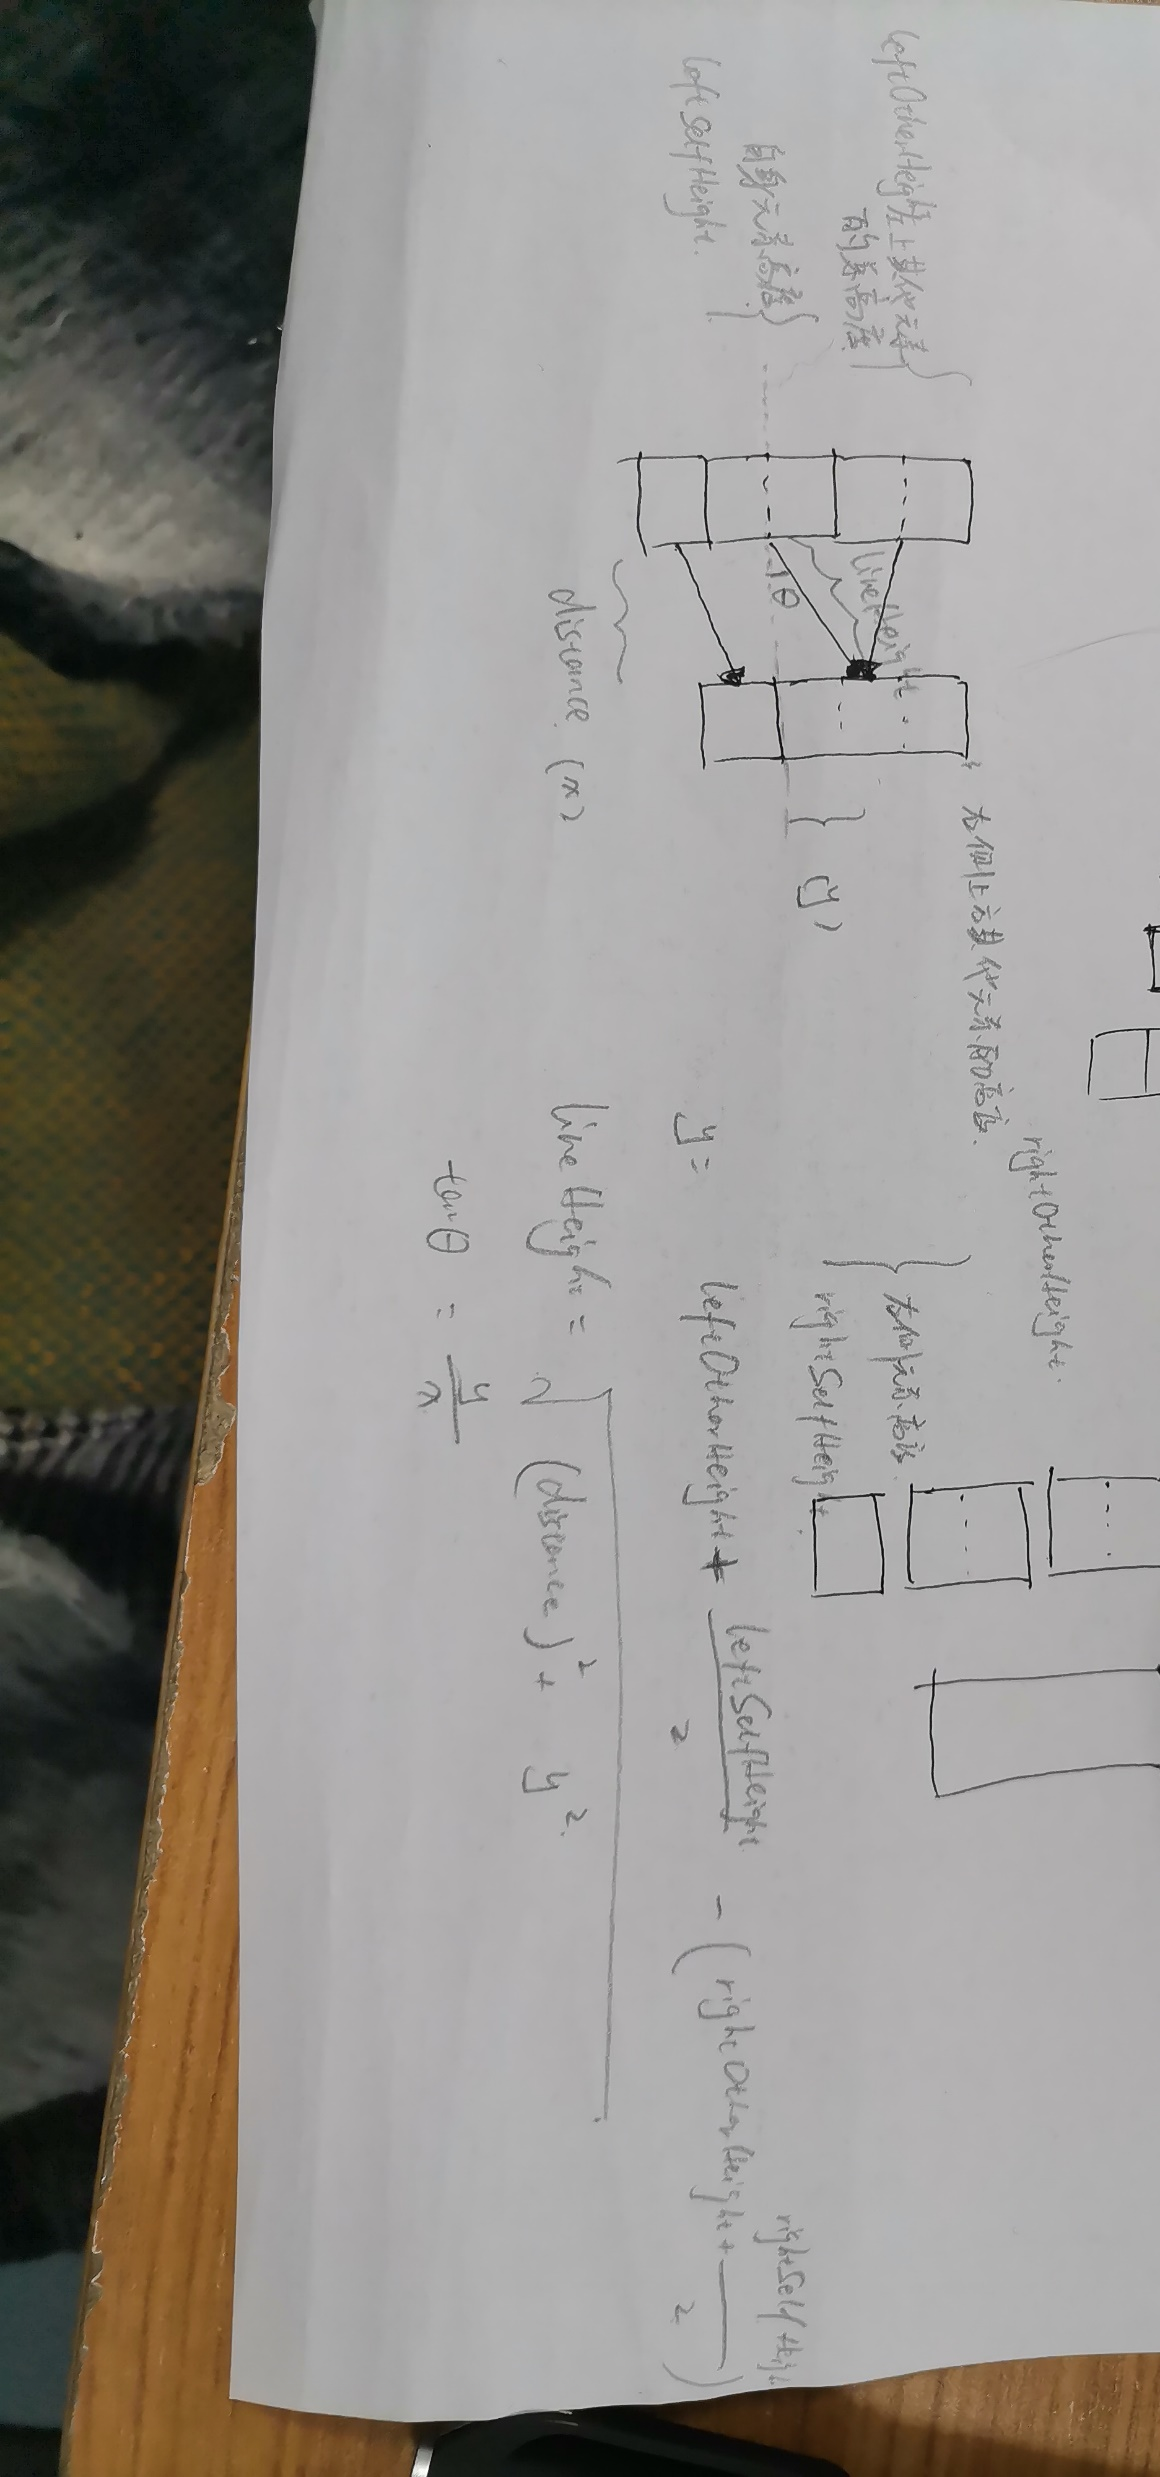 leftOtherHeight 左上其他元素
的总高度
自身元素高度
leftSelfHeight.
lineHeight
θ
distance (x)
(y)
右侧上方其他元素的高度.
rightOtherHeight.
右侧元素高度.
rightSelfHeight.
y = leftOtherHeight + leftSelfHeight / 2 - (rightOtherHeight + rightSelfHeight / 2)
lineHeight = √ (distance)² + y².
tanθ = y / x